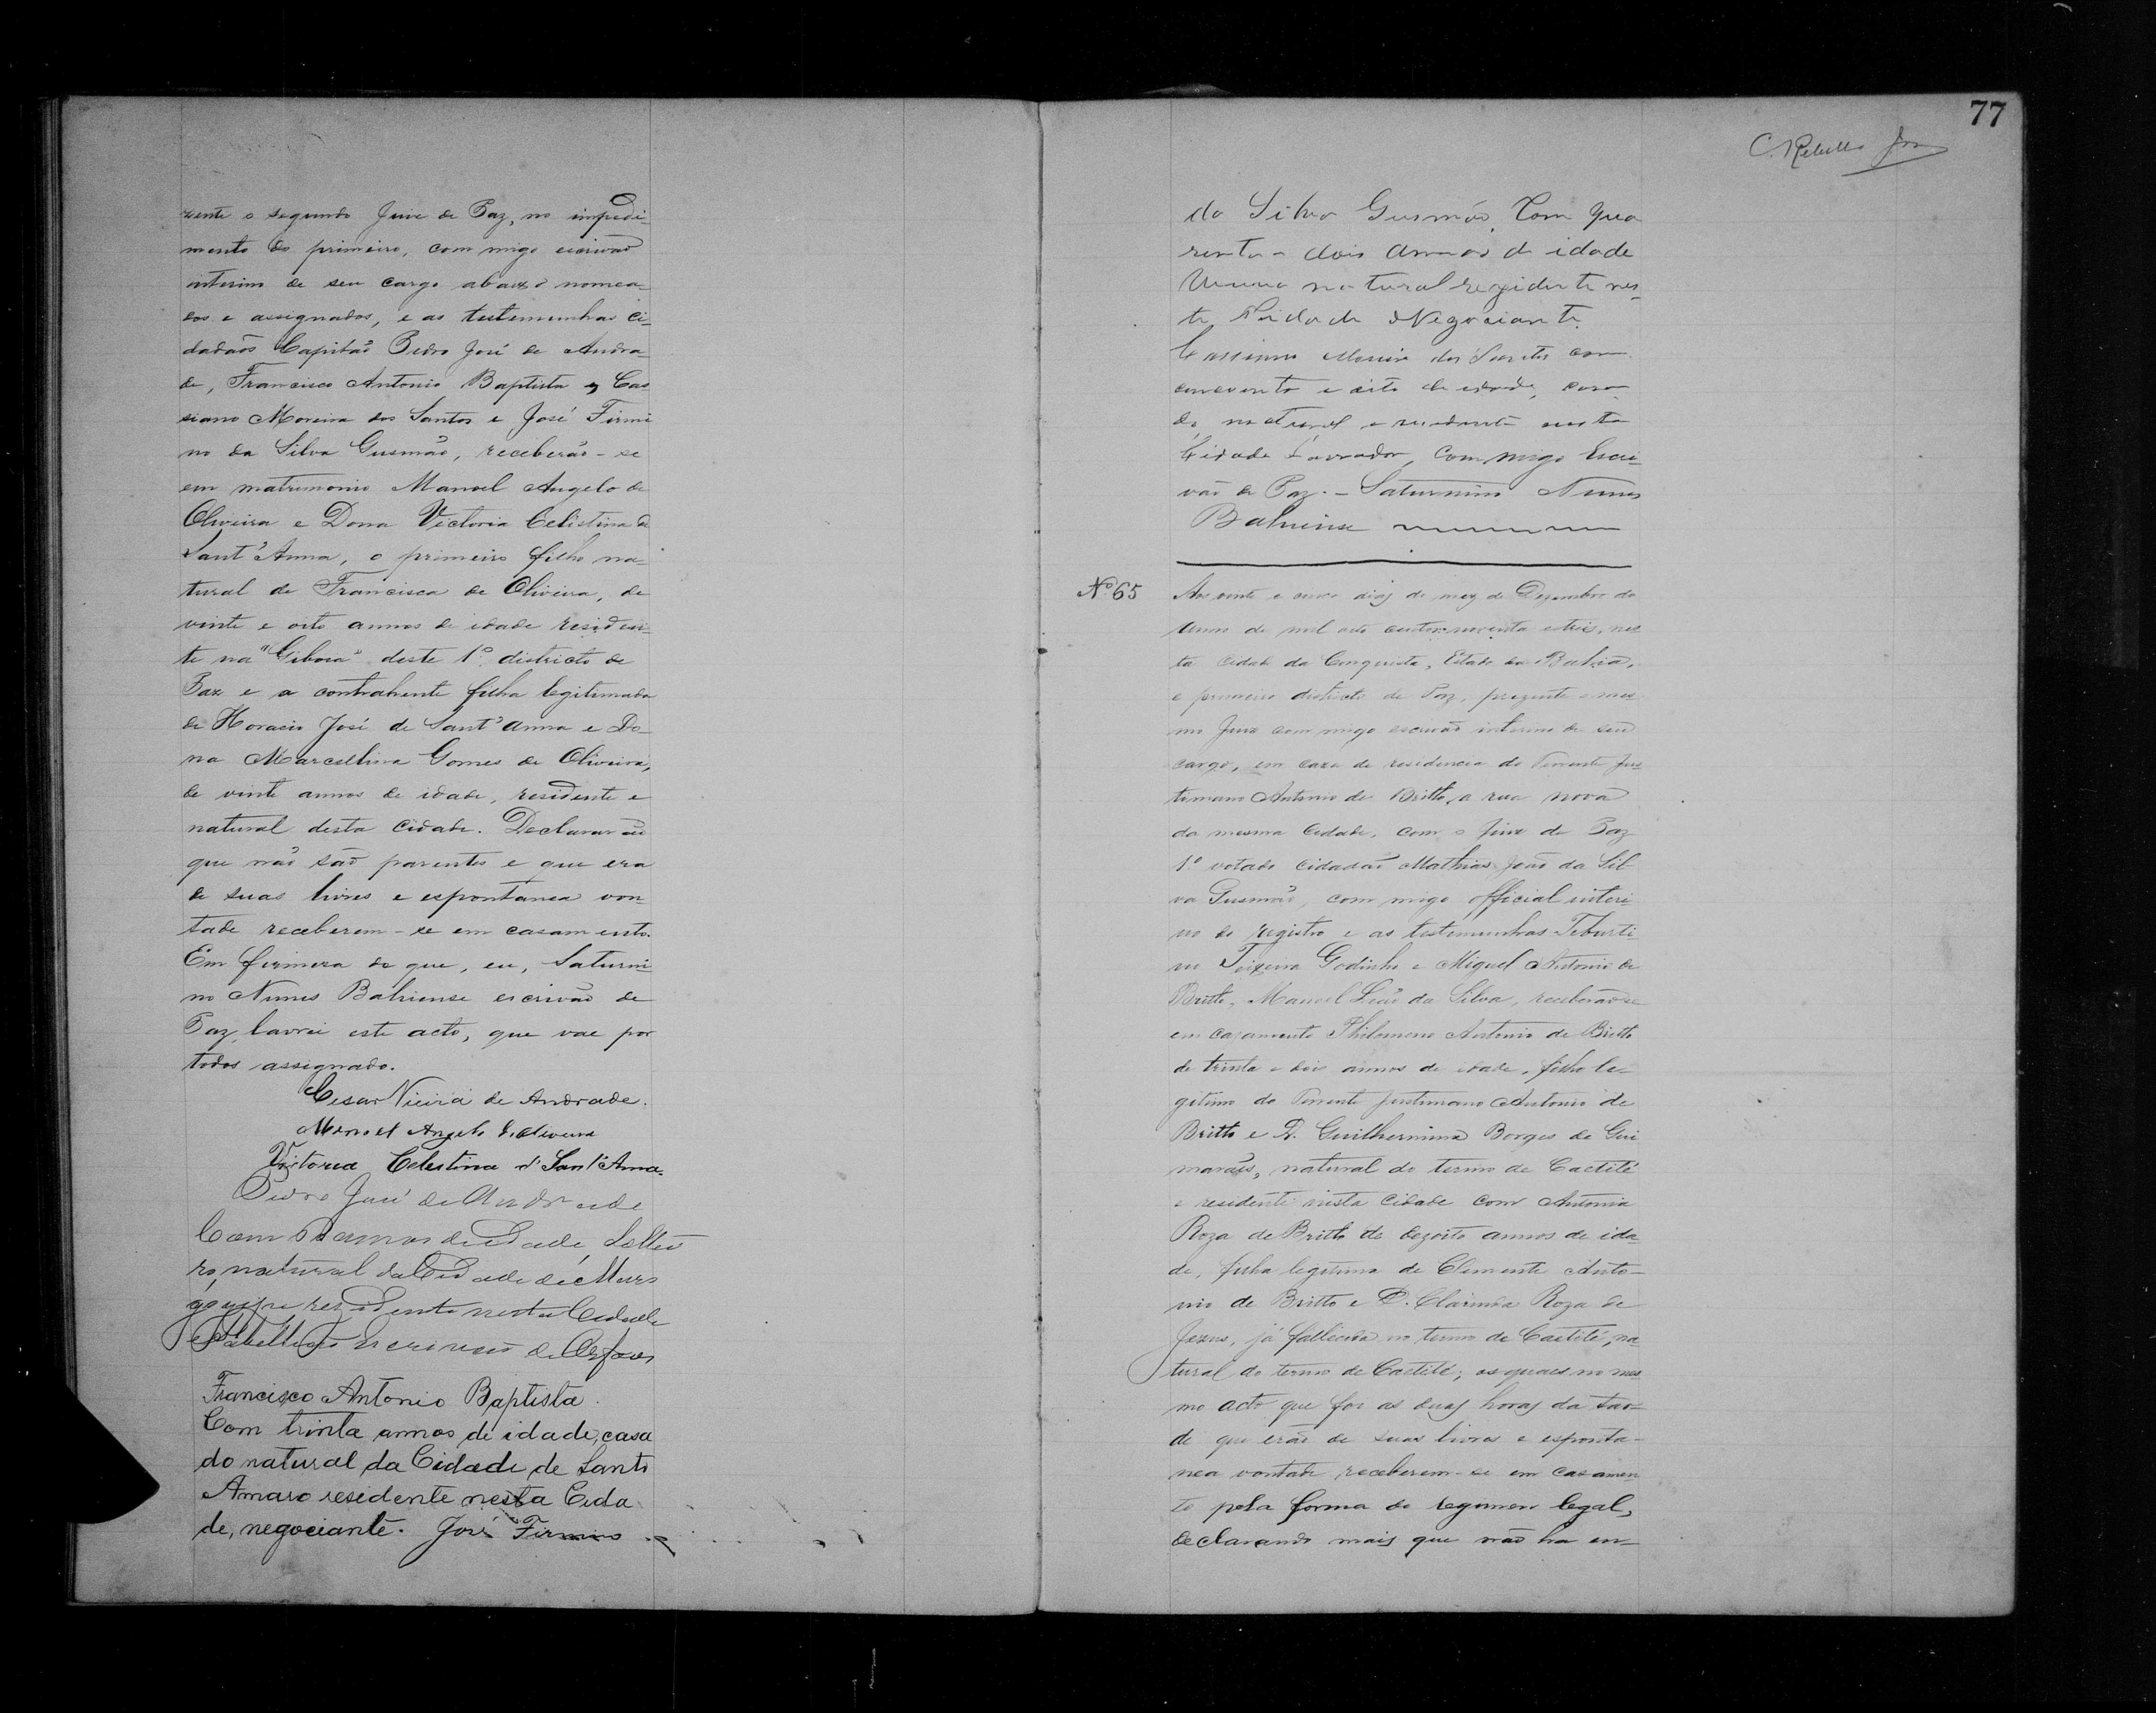 zente o segundo Juiz de Paz, no impedi-
mento do primeiro, commigo escrivão
interino de seu cargo abaixo nomea-
dos e assignados, e as testemunhas ci-
dadaõs Capitaõ Pedro José de Andra-
de, Francisco Antonio Baptista e Cas
siano Moreira dos Santos e José Firmi
no da Silva Gusmão, receberão-se
em matrimonio Manoel Angelo de
Oliveira e Dona Victoria Celistina de
Sant'Anna, o primeiro filho na-
tural de Francisca de Oliveira, de
vinte e oito annos de idade residen-
te na "Giboia" deste 1º. districto de
Paz e a contrahente filha legitimada
de Horacio José de Sant'Anna e Do-
na Marcellina Gomes de Oliveira,
de vinte annos de idade, residente e
natural desta cidade. Declararão
que não são parentes e que era
de suas livres e espontanea von-
tade receberem-se em casamento.
Em firmeza do que, eu, Saturni-
no Nunes Bahiense escrivão de
Paz, lavrei este acto, que vae por
todos assignado.
Cesar Vieira de Andrade.
Manoel Angelo de Oliveira
Victorea Celestina d'Sant'Anna.
Pedro José de Andrade
Com annos de idade, Soltei
ro, natural da Cidade de Mara
gogipe rezidente nesta Cidade
Tabelleão Escrivão de Orfaos
Francisco Antonio Baptista.
Com trinta annos de idade, casa
do natural da Cidade de Santo
Amaro residente nesta Cida
de, negociante. José Firmino
77
C. Rebello
da Silva Gusmão, Com qua
renta e dois annos de idade
natural rezidente nes-
ta Cidade Negociante.
Cassiano Moreira dos Santos com
cincoenta e oito de idade, casa-
do, natural e residente nesta
Cidade Lavrador, Commigo Escri-
vão de Paz. – Saturnino Nunes
Bahiense
Nº 65 Aos vinte e cinco dias do mez de Dezembro do
anno de mil oito centos noventa e tres, nes
ta cidade da Conquista, Estado da Bahia,
e primeiro districto de Paz, prezente o mes
mo Juiz commigo escrivão interino de seu
cargo, em caza de residencia do Tenente Jus
tiniano Antonio de Britto, a rua nova
da mesma cidade, com o Juiz de Paz
1º votado cidadaõ Mathias João da Sil
va Gusmão, commigo official interi-
no do registro e as testemunhas Teburti
no Teixeira Godinho e Miguel Antonio de
Britto, Manoel Leão da Silva, receberão-se
em cazamento Philomeno Antonio de Britto
de trinta e dois annos de idade, filho le-
gitimo do Tenente Justiniano Antonio de
Britto e D. Guilhermina Borges de Gui
marães, natural do termo de Caetité
e residente nesta cidade com Antonia
Roza de Britto de dezoito annos de ida-
de, filha legitima de Clemente Anto-
nio de Britto e D. Clarinda Roza de
Jezus, já fallecida no termo de Caetité, na-
tural do termo de Caetité; os quaes no mes
mo acto que foi as duas horas da tar-
de que erão de suas livres e esponta-
nea vontade receberem-se em casamen
to pela forma do regimen legal,
declarando mais que não ha en-